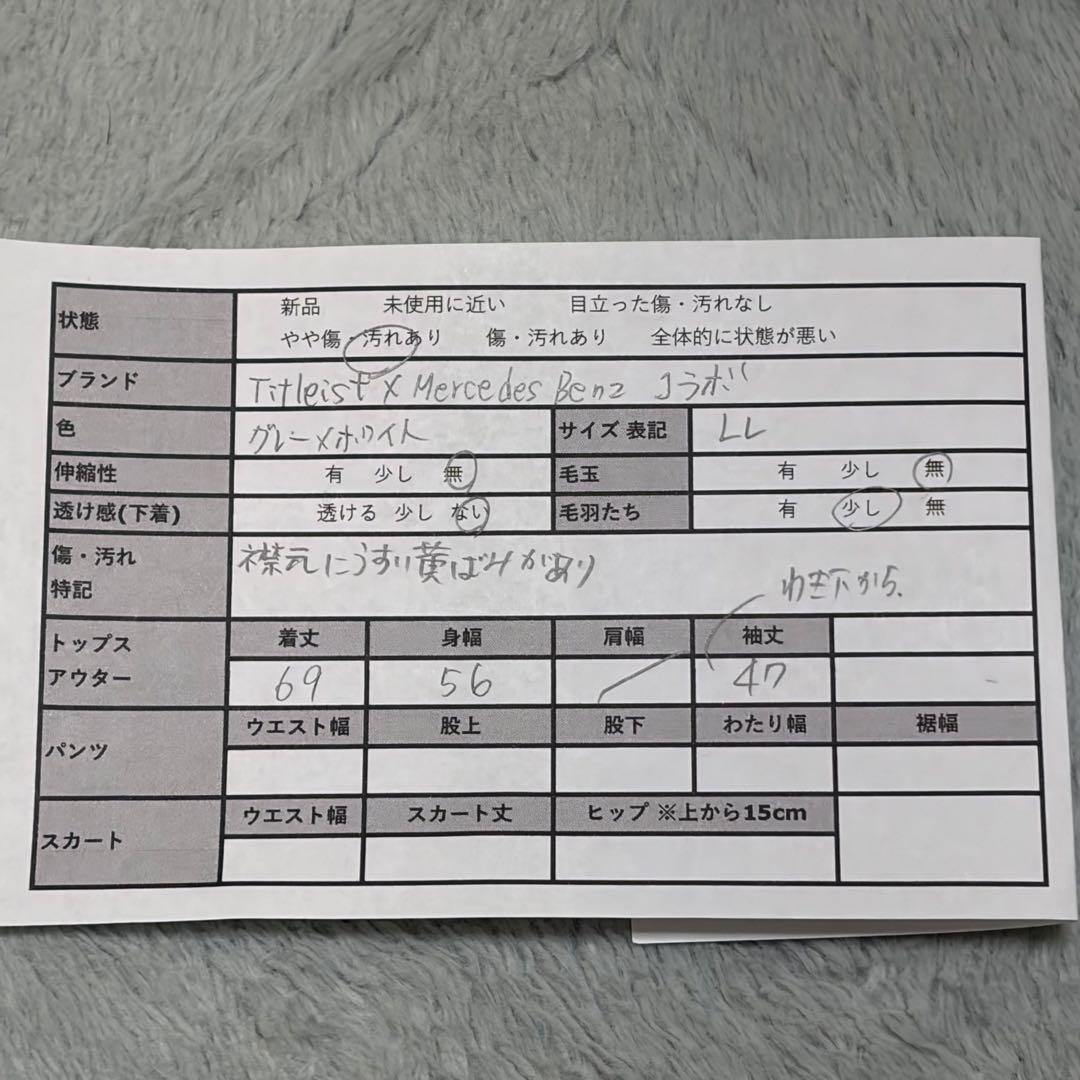 状態 新品 未使用に近い 目立った傷・汚れなし
やや傷・汚れあり 傷・汚れあり 全体的に状態が悪い
ブランド Titleist × Mercedes Benz コラボ
色 グレー×ホワイト サイズ 表記 LL
伸縮性 有 少し 無 毛玉 有 少し 無
透け感(下着) 透ける 少し ない 毛羽たち 有 少し 無
傷・汚れ 襟元にうすい黄ばみがあり
特記 わき下から、
トップス 着丈 身幅 肩幅 袖丈
アウター 69 56 47
パンツ ウエスト幅 股上 股下 わたり幅 裾幅
スカート ウエスト幅 スカート丈 ヒップ ※上から15cm